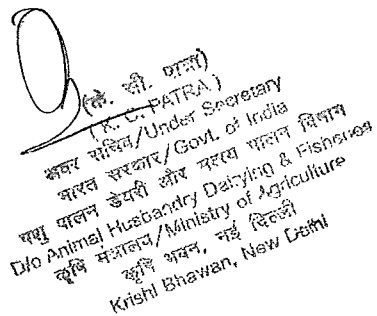 (के. सी. पात्रा)
(K. C. PATRA)
अवर सचिव/Under Secretary
भारत सरकार/Govt. of India
पशु पालन डेयरी और मत्स्य पालन विभाग
D/o Animal Husbandry Dairying & Fisheries
कृषि मंत्रालय/Ministry of Agriculture
कृषि भवन, नई दिल्ली
Krishi Bhawan, New Delhi